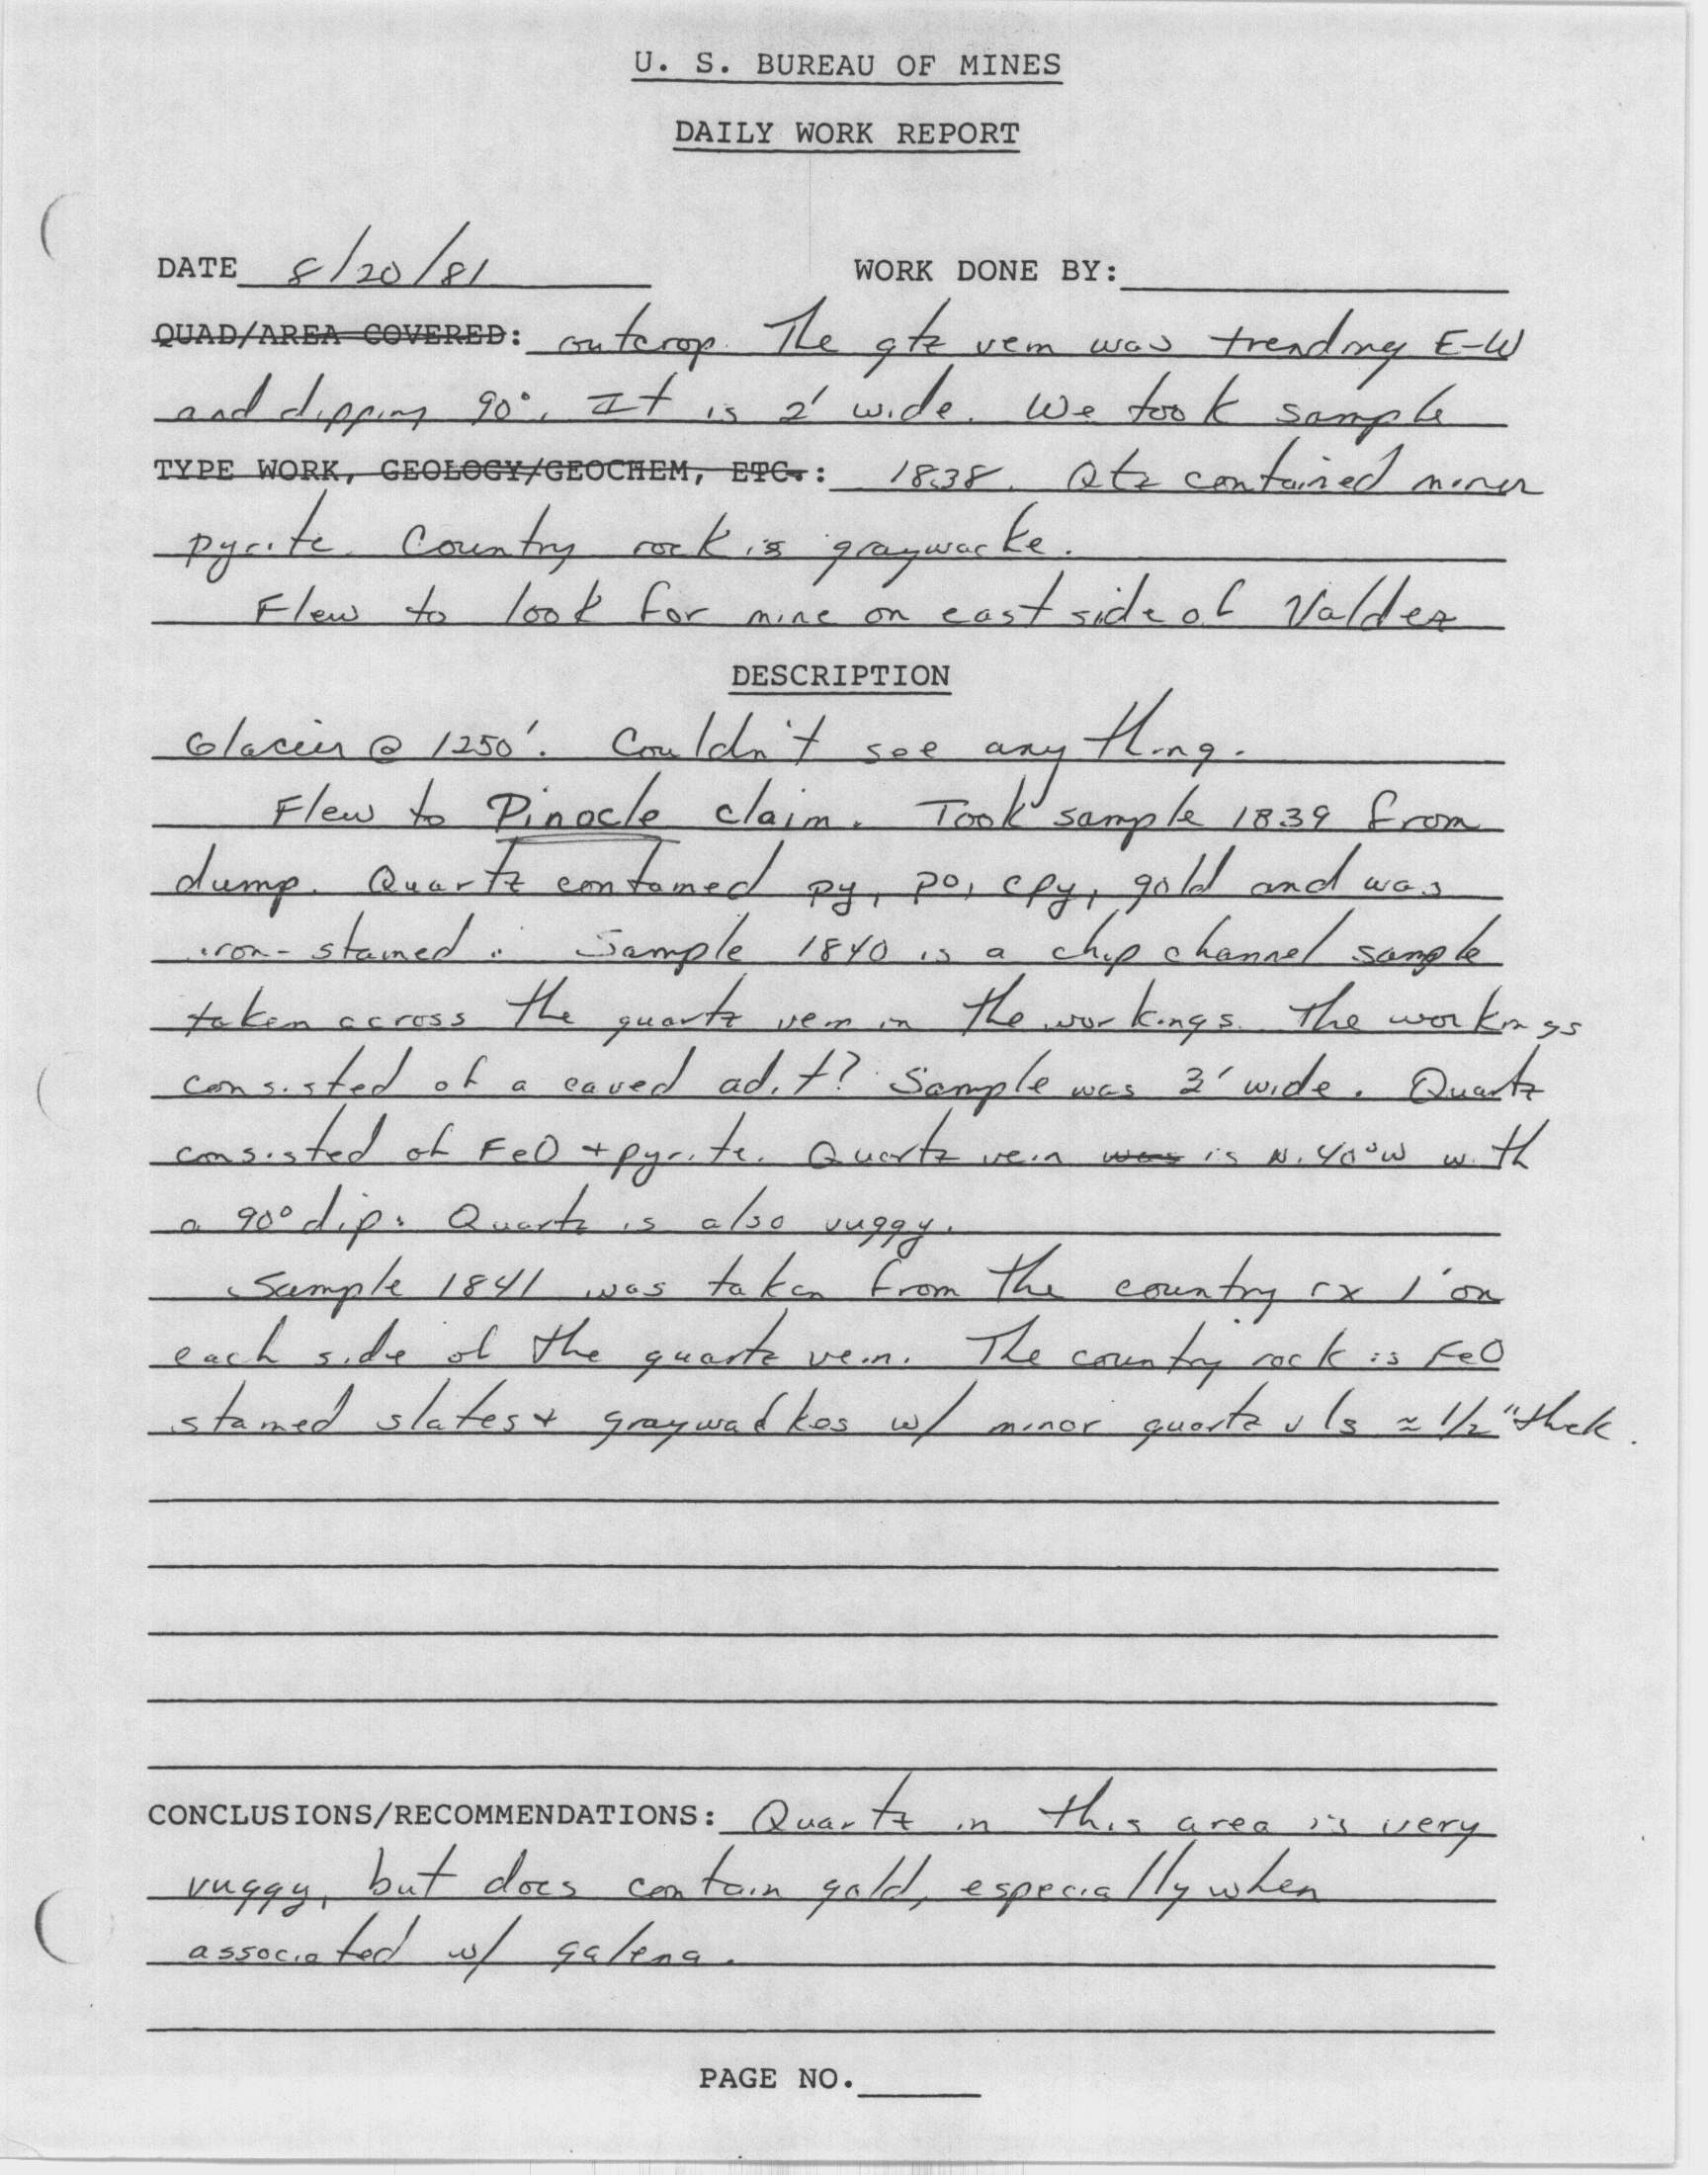 U. S. BUREAU OF MINES
DAILY WORK REPORT
DATE 8/20/81 WORK DONE BY:
QUAD/AREA COVERED: outcrop. The qtz vein was trending E-W
and dipping 90°. It is 2' wide. We took sample
TYPE WORK, GEOLOGY/GEOCHEM, ETC.: 1838. Qtz contained minor
pyrite. Country rock is graywacke.
Flew to look for mine on east side of Valdez
DESCRIPTION
Glacier @ 1250'. Couldn't see anything.
Flew to Pinocle claim. Took sample 1839 from
dump. Quartz contained py, po, cpy, gold and was
iron-stained. Sample 1840 is a chip channel sample
taken across the quartz vein in the workings. The workings
consisted of a caved adit? Sample was 3' wide. Quartz
consisted of FeO + pyrite. Quartz vein was is N. 40°W with
a 90° dip. Quartz is also vuggy.
Sample 1841 was taken from the country rx 1' on
each side of the quartz vein. The country rock is FeO
stained slates + graywackes w/ minor quartz vls ≈ 1/2" thick.
CONCLUSIONS/RECOMMENDATIONS: Quartz in this area is very
vuggy, but does contain gold, especially when
associated w/ galena.
PAGE NO.